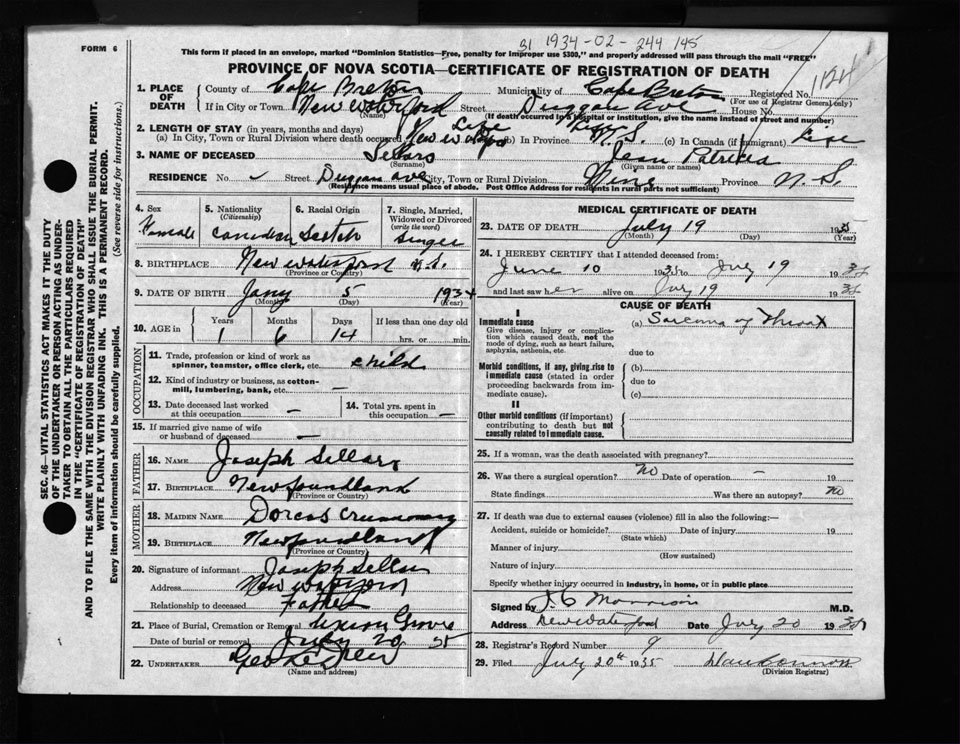 FORM 6
31 1934-02-244 145
This form if placed in an envelope, marked "Dominion Statistics—Free, penalty for improper use $300," and properly addressed will pass through the mail "FREE"
PROVINCE OF NOVA SCOTIA—CERTIFICATE OF REGISTRATION OF DEATH
1. PLACE OF DEATH
County of Cape Breton Municipality of Cape Breton Registered No. 1124
(For use of Registrar General only)
If in City or Town New Waterford Street Duggan Ave House No.
(Name) (If death occurred in a hospital or institution, give the name instead of street and number)
2. LENGTH OF STAY (in years, months and days) Life Life
(a) In City, Town or Rural Division where death occurred New Waterford (b) In Province N. S. (c) In Canada (if immigrant) Life
3. NAME OF DECEASED Sellars Jean Patricia
(Surname) (Given name or names)
RESIDENCE No. Street Duggan Ave City, Town or Rural Division Mine Province N. S
(Residence means usual place of abode. Post Office Address for residents in rural parts not sufficient)
SEC. 46—VITAL STATISTICS ACT MAKES IT THE DUTY
OF THE UNDERTAKER OR PERSON ACTING AS UNDER-
TAKER TO OBTAIN ALL THE PARTICULARS REQUIRED
IN THE "CERTIFICATE OF REGISTRATION OF DEATH"
AND TO FILE THE SAME WITH THE DIVISION REGISTRAR WHO SHALL ISSUE THE BURIAL PERMIT.
WRITE PLAINLY WITH UNFADING INK. THIS IS A PERMANENT RECORD.
Every item of information should be carefully supplied. (See reverse side for instructions.)
4. Sex Female
5. Nationality (Citizenship) Canadian
6. Racial Origin Scotch
7. Single, Married, Widowed or Divorced (write the word) Single
8. BIRTHPLACE New Waterford N.S.
(Province or Country)
9. DATE OF BIRTH Jany 5 1934
(Month) (Day) (Year)
10. AGE in Years Months Days If less than one day old
1 6 14 hrs. or min.
OCCUPATION
11. Trade, profession or kind of work as spinner, teamster, office clerk, etc. child
12. Kind of industry or business, as cotton-mill, lumbering, bank, etc.
13. Date deceased last worked at this occupation —
14. Total yrs. spent in this occupation —
15. If married give name of wife or husband of deceased —
FATHER
16. NAME Joseph Sellars
17. BIRTHPLACE Newfoundland
(Province or Country)
MOTHER
18. MAIDEN NAME Dorcas
19. BIRTHPLACE Newfoundland
(Province or Country)
20. Signature of informant Joseph Sellars
Address New Waterford
Relationship to deceased Father
21. Place of Burial, Cremation or Removal Union Grove
Date of burial or removal July 20 35
22. UNDERTAKER Geo
(Name and address)
MEDICAL CERTIFICATE OF DEATH
23. DATE OF DEATH July 19 1935
(Month) (Day) (Year)
24. I HEREBY CERTIFY that I attended deceased from:
June 10 1935 to July 19 1935
and last saw her alive on July 19 1935
CAUSE OF DEATH
I
Immediate cause (a) Sarcoma of Throat
Give disease, injury or complication which caused death, not the mode of dying, such as heart failure, asphyxia, asthenia, etc. due to
Morbid conditions, if any, giving rise to immediate cause (stated in order proceeding backwards from immediate cause). (b)
due to
(c)
II
Other morbid conditions (if important) contributing to death but not causally related to immediate cause.
25. If a woman, was the death associated with pregnancy?
26. Was there a surgical operation? No Date of operation — 19
State findings Was there an autopsy? No
27. If death was due to external causes (violence) fill in also the following:—
Accident, suicide or homicide? Date of injury 19
(State which)
Manner of injury
(How sustained)
Nature of injury
Specify whether injury occurred in industry, in home, or in public place
Signed by J. C Morrison M.D.
Address New Waterford Date July 20 1935
28. Registrar's Record Number 9
29. Filed July 20th 1935
(Division Registrar)